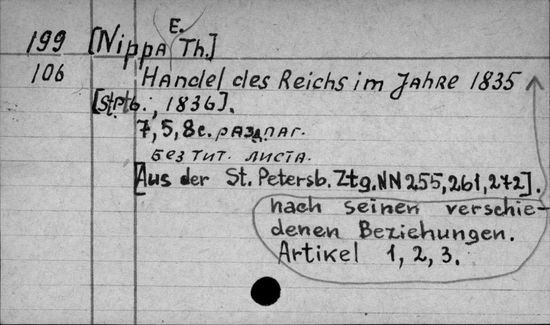 199 [Nippa E. Th.]
106 Handel des Reichs im Jahre 1835
[Stptb., 1836].
7, 5, 8 с. раздпаг.
без тит. листа.
[Aus der St. Petersb. Ztg. NN 255, 261, 272].
nach seinen verschie-
denen Beziehungen.
Artikel 1, 2, 3.